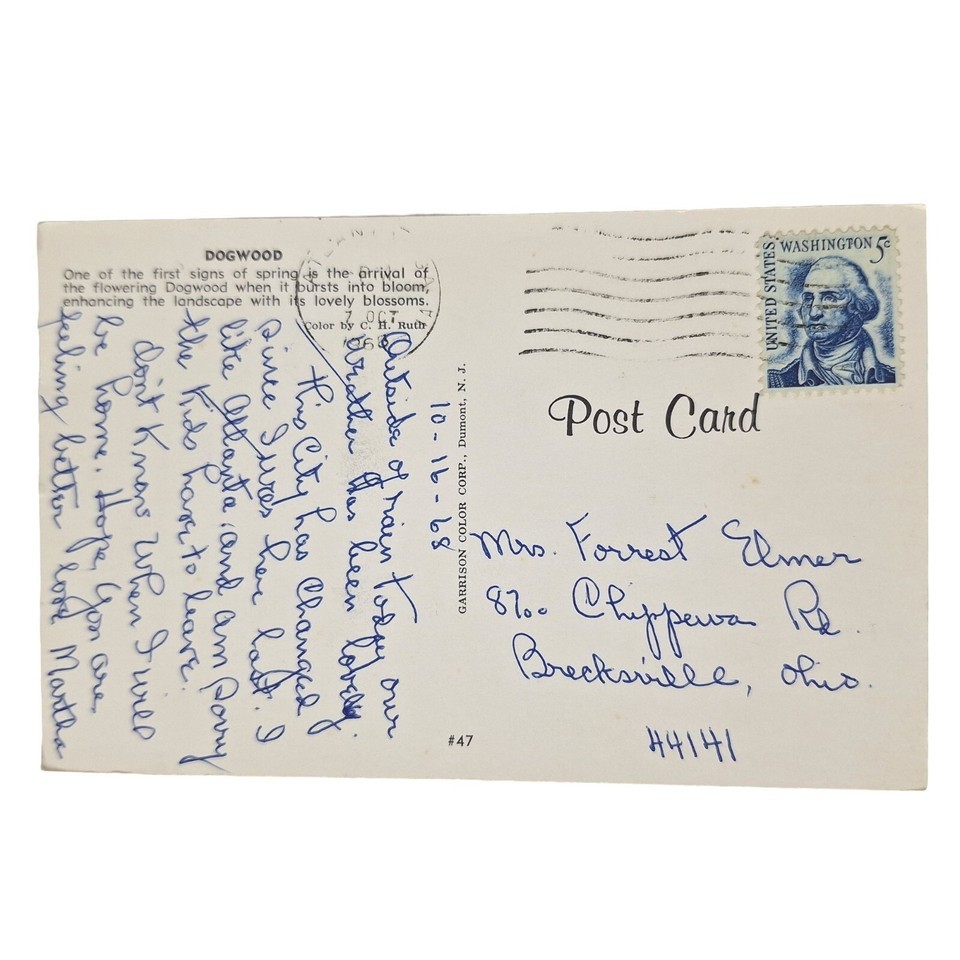 DOGWOOD
One of the first signs of spring is the arrival of
the flowering Dogwood when it bursts into bloom,
enhancing the landscape with its lovely blossoms.
Color by C. H. Ruth
7 OCT
1968
UNITED STATES
WASHINGTON 5c
Post Card
10-16-68
Outside of rain today our
weather has been lovely.
This City has Changed
since I was here last. I
like Atlanta, and am Sorry
the Kids have to leave.
don't Know When I will
be home. Hope you are
feeling better love Martha
GARRISON COLOR CORP., Dumont, N. J.
#47
Mrs. Forrest Elmer
8700 Chippewa Rd.
Brecksville, Ohio.
44141